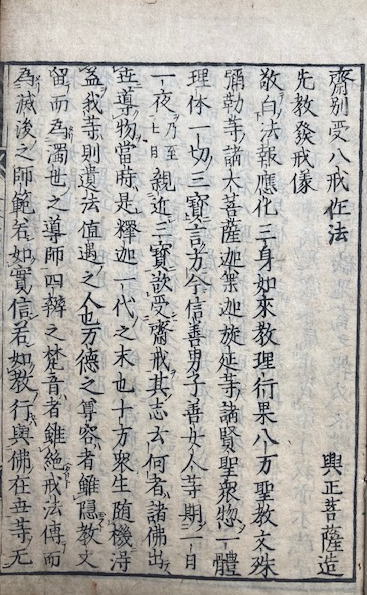 齋別受八戒作法　興正菩薩造
先教發戒儀
敬白法報應化三身如來教理行果八万聖教文殊
彌勒等諸大菩薩迦葉迦旃延等諸賢聖衆惣一體
理体一切三寳言方今信善男子善女人等期一日
一夜乃至七日親近三寳欲受齋戒其志云何者諸佛出
世導物當時是釋迦一代之末也十方衆生随機得
益我等則遺法值遇之人也万德之尊容者雖隠教文
留而為濁世之導師四辨之梵音者雖絶戒法傳而
為滅後之師範若如實信若如教行與佛在世等无